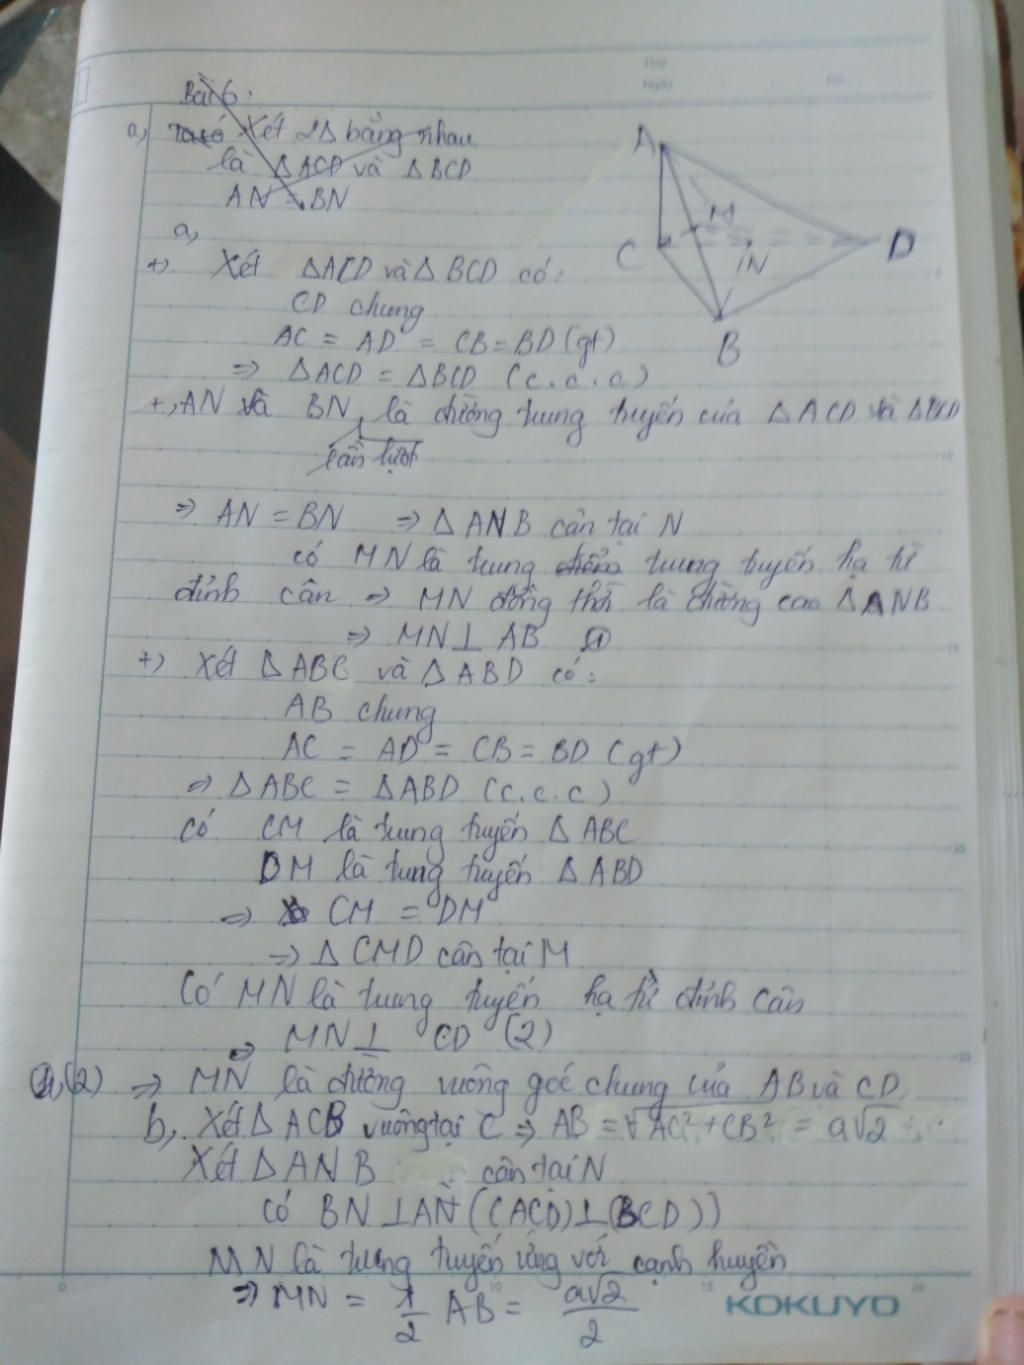 Thứ
Ngày
No.
Bài 6:
a, Ta có Xét 2Δ bằng nhau
là Δ ACD và Δ BCD
AN = BN
a,
+) Xét ΔACD và Δ BCD có:
CD chung
AC = AD = CB = BD (gt)
=> ΔACD = ΔBCD (c.c.c)
+, AN và BN là đường trung tuyến của Δ ACD và ΔBCD
lần lượt
=> AN = BN => Δ ANB cân tại N
có MN là trung điểm trung tuyến hạ từ
đỉnh cân => MN đồng thời là đường cao ΔANB
=> MN⊥ AB (1)
+) Xét Δ ABC và Δ ABD có:
AB chung
AC = AD = CB = BD (gt)
=> Δ ABC = ΔABD (c.c.c)
có CM là trung tuyến Δ ABC
DM là tung tuyến Δ ABD
=> CM = DM
=> Δ CMD cân tại M
Có MN là trung tuyến hạ từ đỉnh cân
=> MN⊥ CD (2)
(1),(2) => MN là đường vuông góc chung của AB và CD
b, Xét Δ ACB vuông tại C => AB = √AC² + CB² = a√2
Xét Δ ANB cân tại N
có BN ⊥AN ((ACD)⊥(BCD))
MN là trung tuyến ứng với cạnh huyền
=> MN = 1/2 AB = a√2/2
A
M
C
D
N
B
5
10
15
20
25
0
10
15
20
KOKUYO